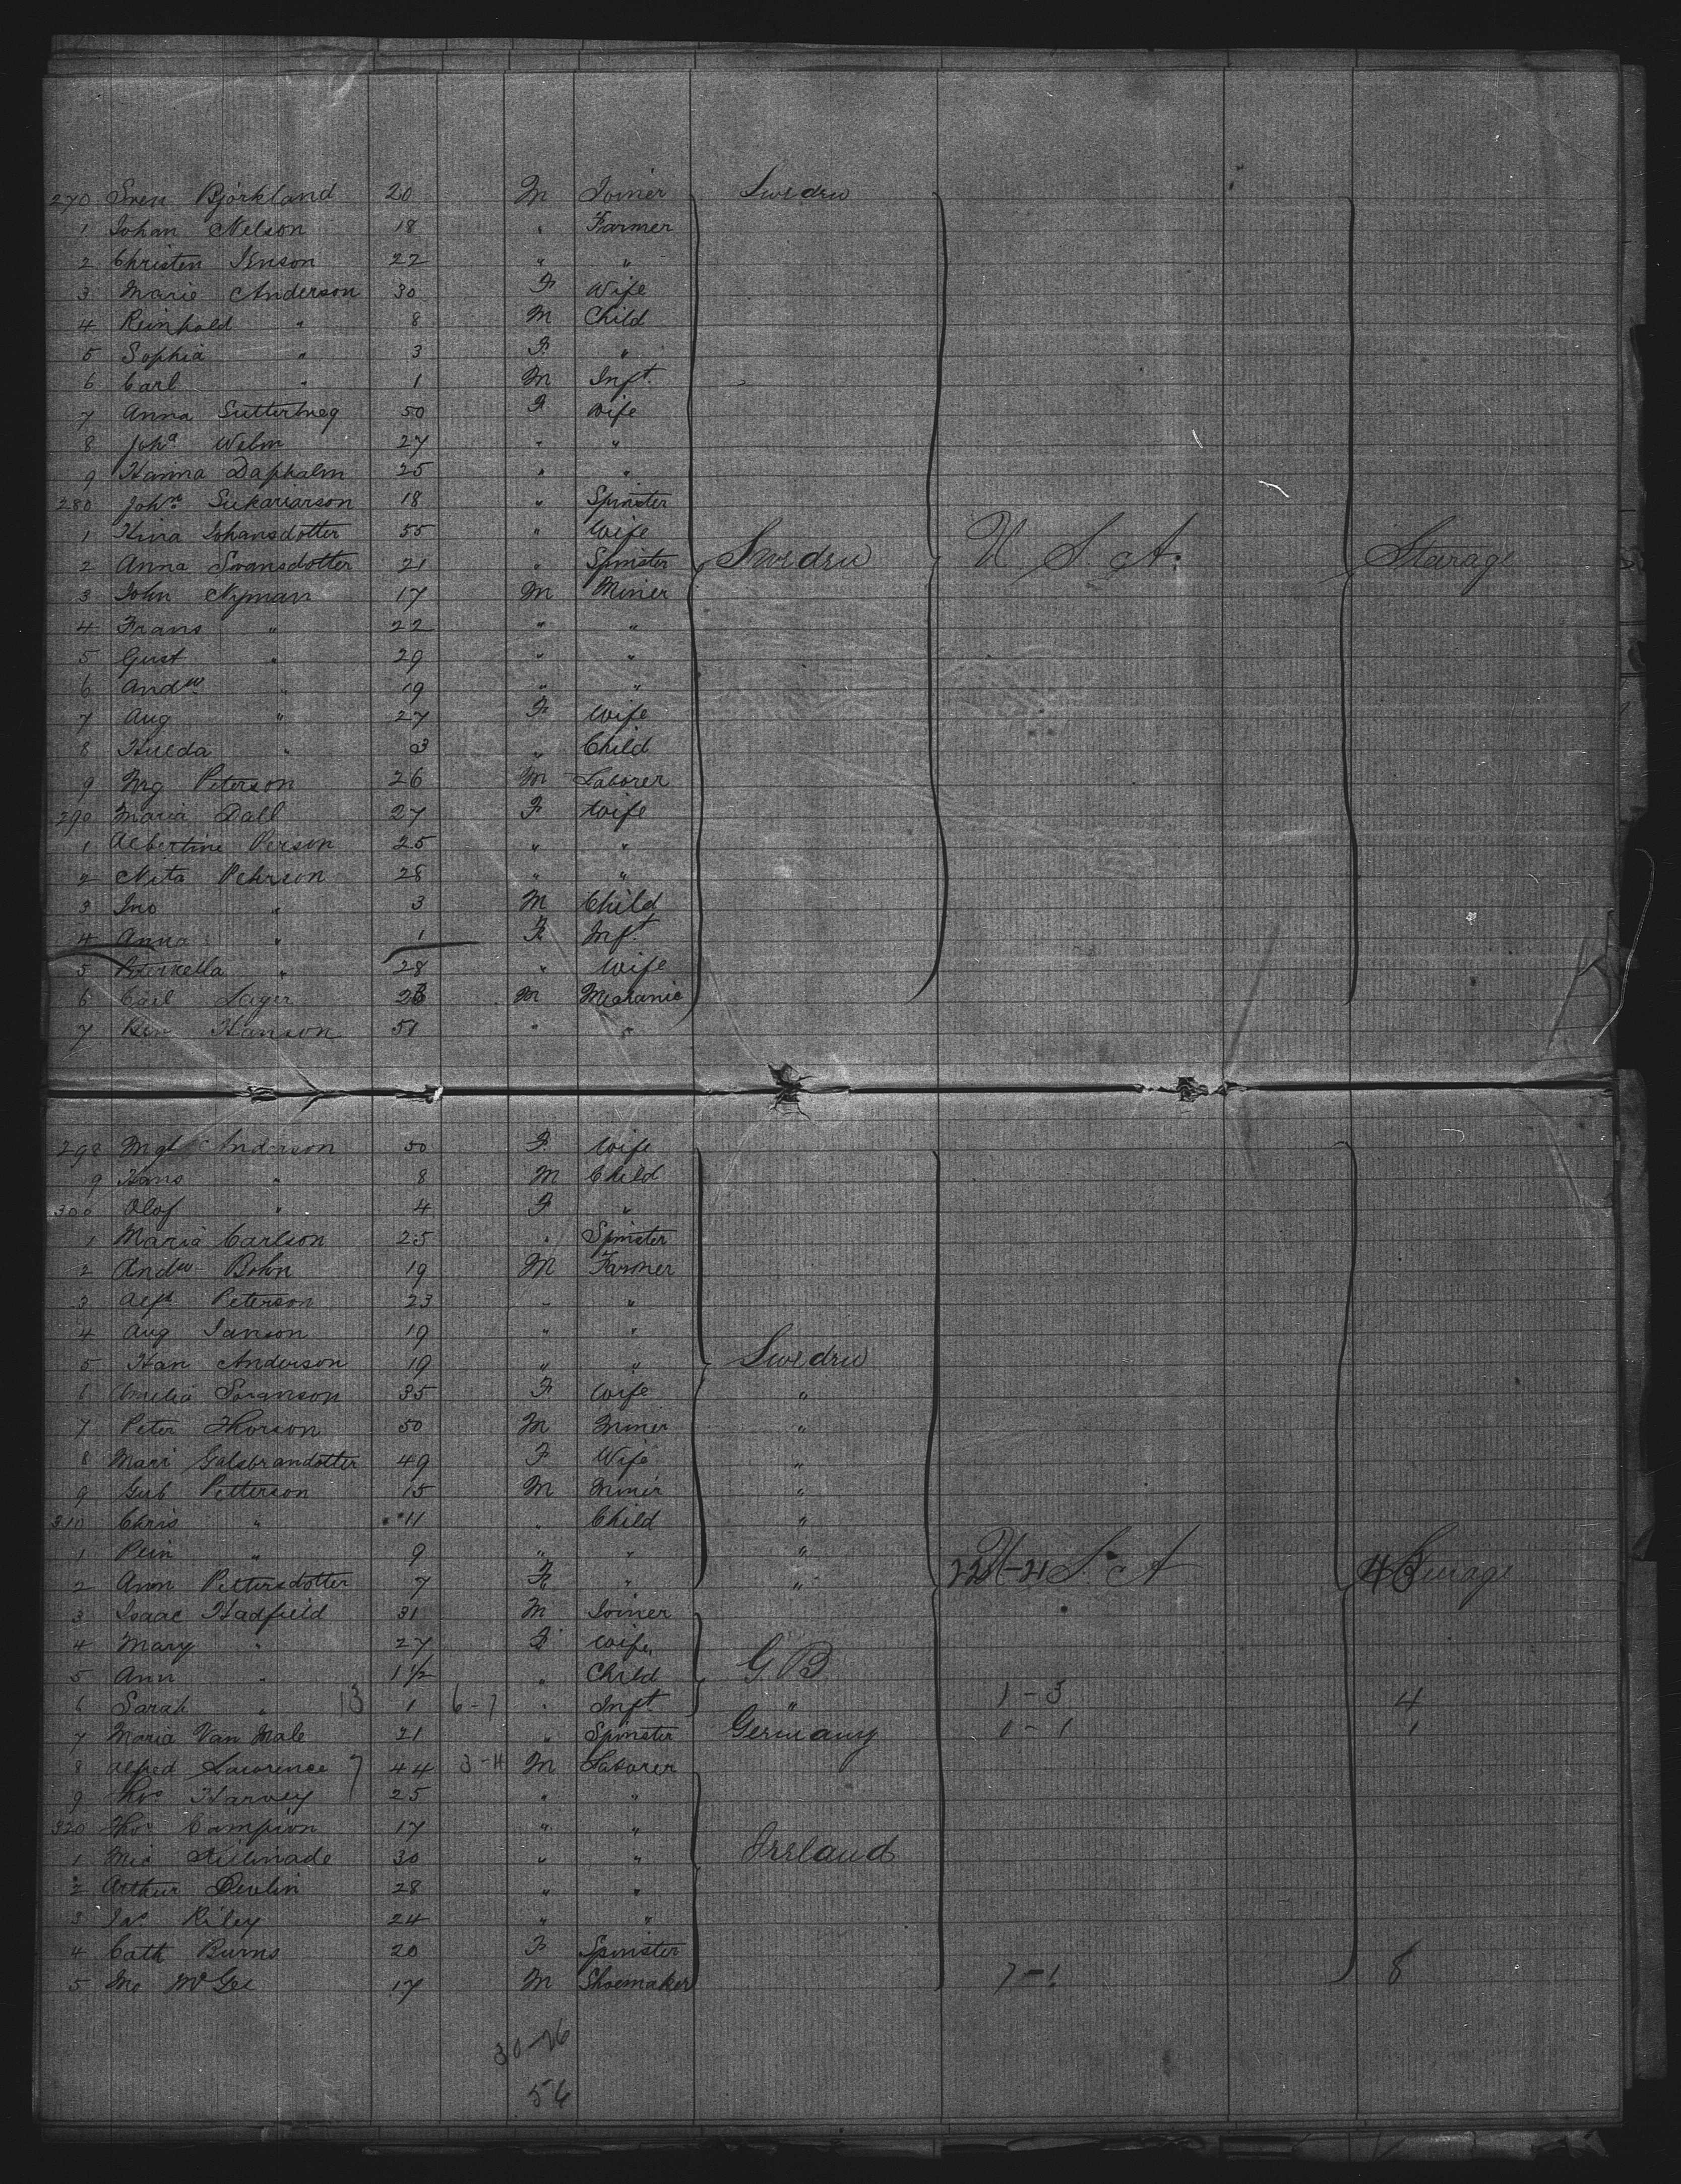 270 Sven Björkland 20 M Joiner Sweden
1 Johan Nelson 18 " Farmer
2 Christen Jenson 22 " "
3 Marie Anderson 30 F Wife
4 Reinhold " 8 M Child
5 Sophia " 3 F "
6 Carl " 1 M Inft.
7 Anna 50 F Wife
8 Joha Welm 27 " "
9 Hanna Dapholm 25 " "
280 Johna 18 " Spinster
1 Johansdotter 55 " Wife
2 Anna Svansdotter 21 " Spinster Sweden U. S. A. Stearage
3 John Nyman 17 M Miner
4 Frans " 22 " "
5 Gust " 29 " "
6 Andw " 19 " "
7 Aug " 27 F Wife
8 Hulda " 3 " Child
9 Mg Peterson 26 M Laborer
290 Maria Dall 27 F Wife
1 Albertine Person 25 " "
2 Nita Pehrson 28 " "
3 Jno " 3 M Child
4 Anna " 1 F Inft.
5 " 28 " Wife
6 Carl Lager M Mecanic
7 Ben Hanson 51 " "
298 Mgt Anderson 50 F Wife
9 Hans " 8 M Child
300 Olof " 4 F "
1 Maria Carlson 25 " Spinster
2 Andw Bohn 19 M Farmer
3 Alfd Peterson 23 " "
4 Aug Janson 19 " "
5 Han Anderson 19 " " Sweden
6 Amelia 35 F Wife "
7 Peter Thorson 50 M Miner "
8 Mari 49 F Wife "
9 Gub Petterson 15 M Miner "
310 Chris " 11 " Child "
1 " 9 " " "
2 Ann Pettersdotter 7 F " " 22-21 U. S. A 43 Stearage
3 Isaac Hadfield 31 M Joiner
4 Mary " 27 F Wife
5 Ann " 1 1/2 " Child G. B.
6 Sarah " 13 1 6-7 " Inft. " 1-3 4
7 Maria Van Male 21 " Spinster Germany 0-1 1
8 Alfred Lawrence 7 44 3-4 M Laborer
9 Thos Harvey 25 " "
320 Thos Campion 17 " "
1 Mic 30 " " Ireland
2 Arthur Devlin 28 " "
3 Jas Riley 24 " "
4 Cath Burns 20 F Spinster
5 Jno McGee 17 M Shoemaker 7-1 8
30-26
56